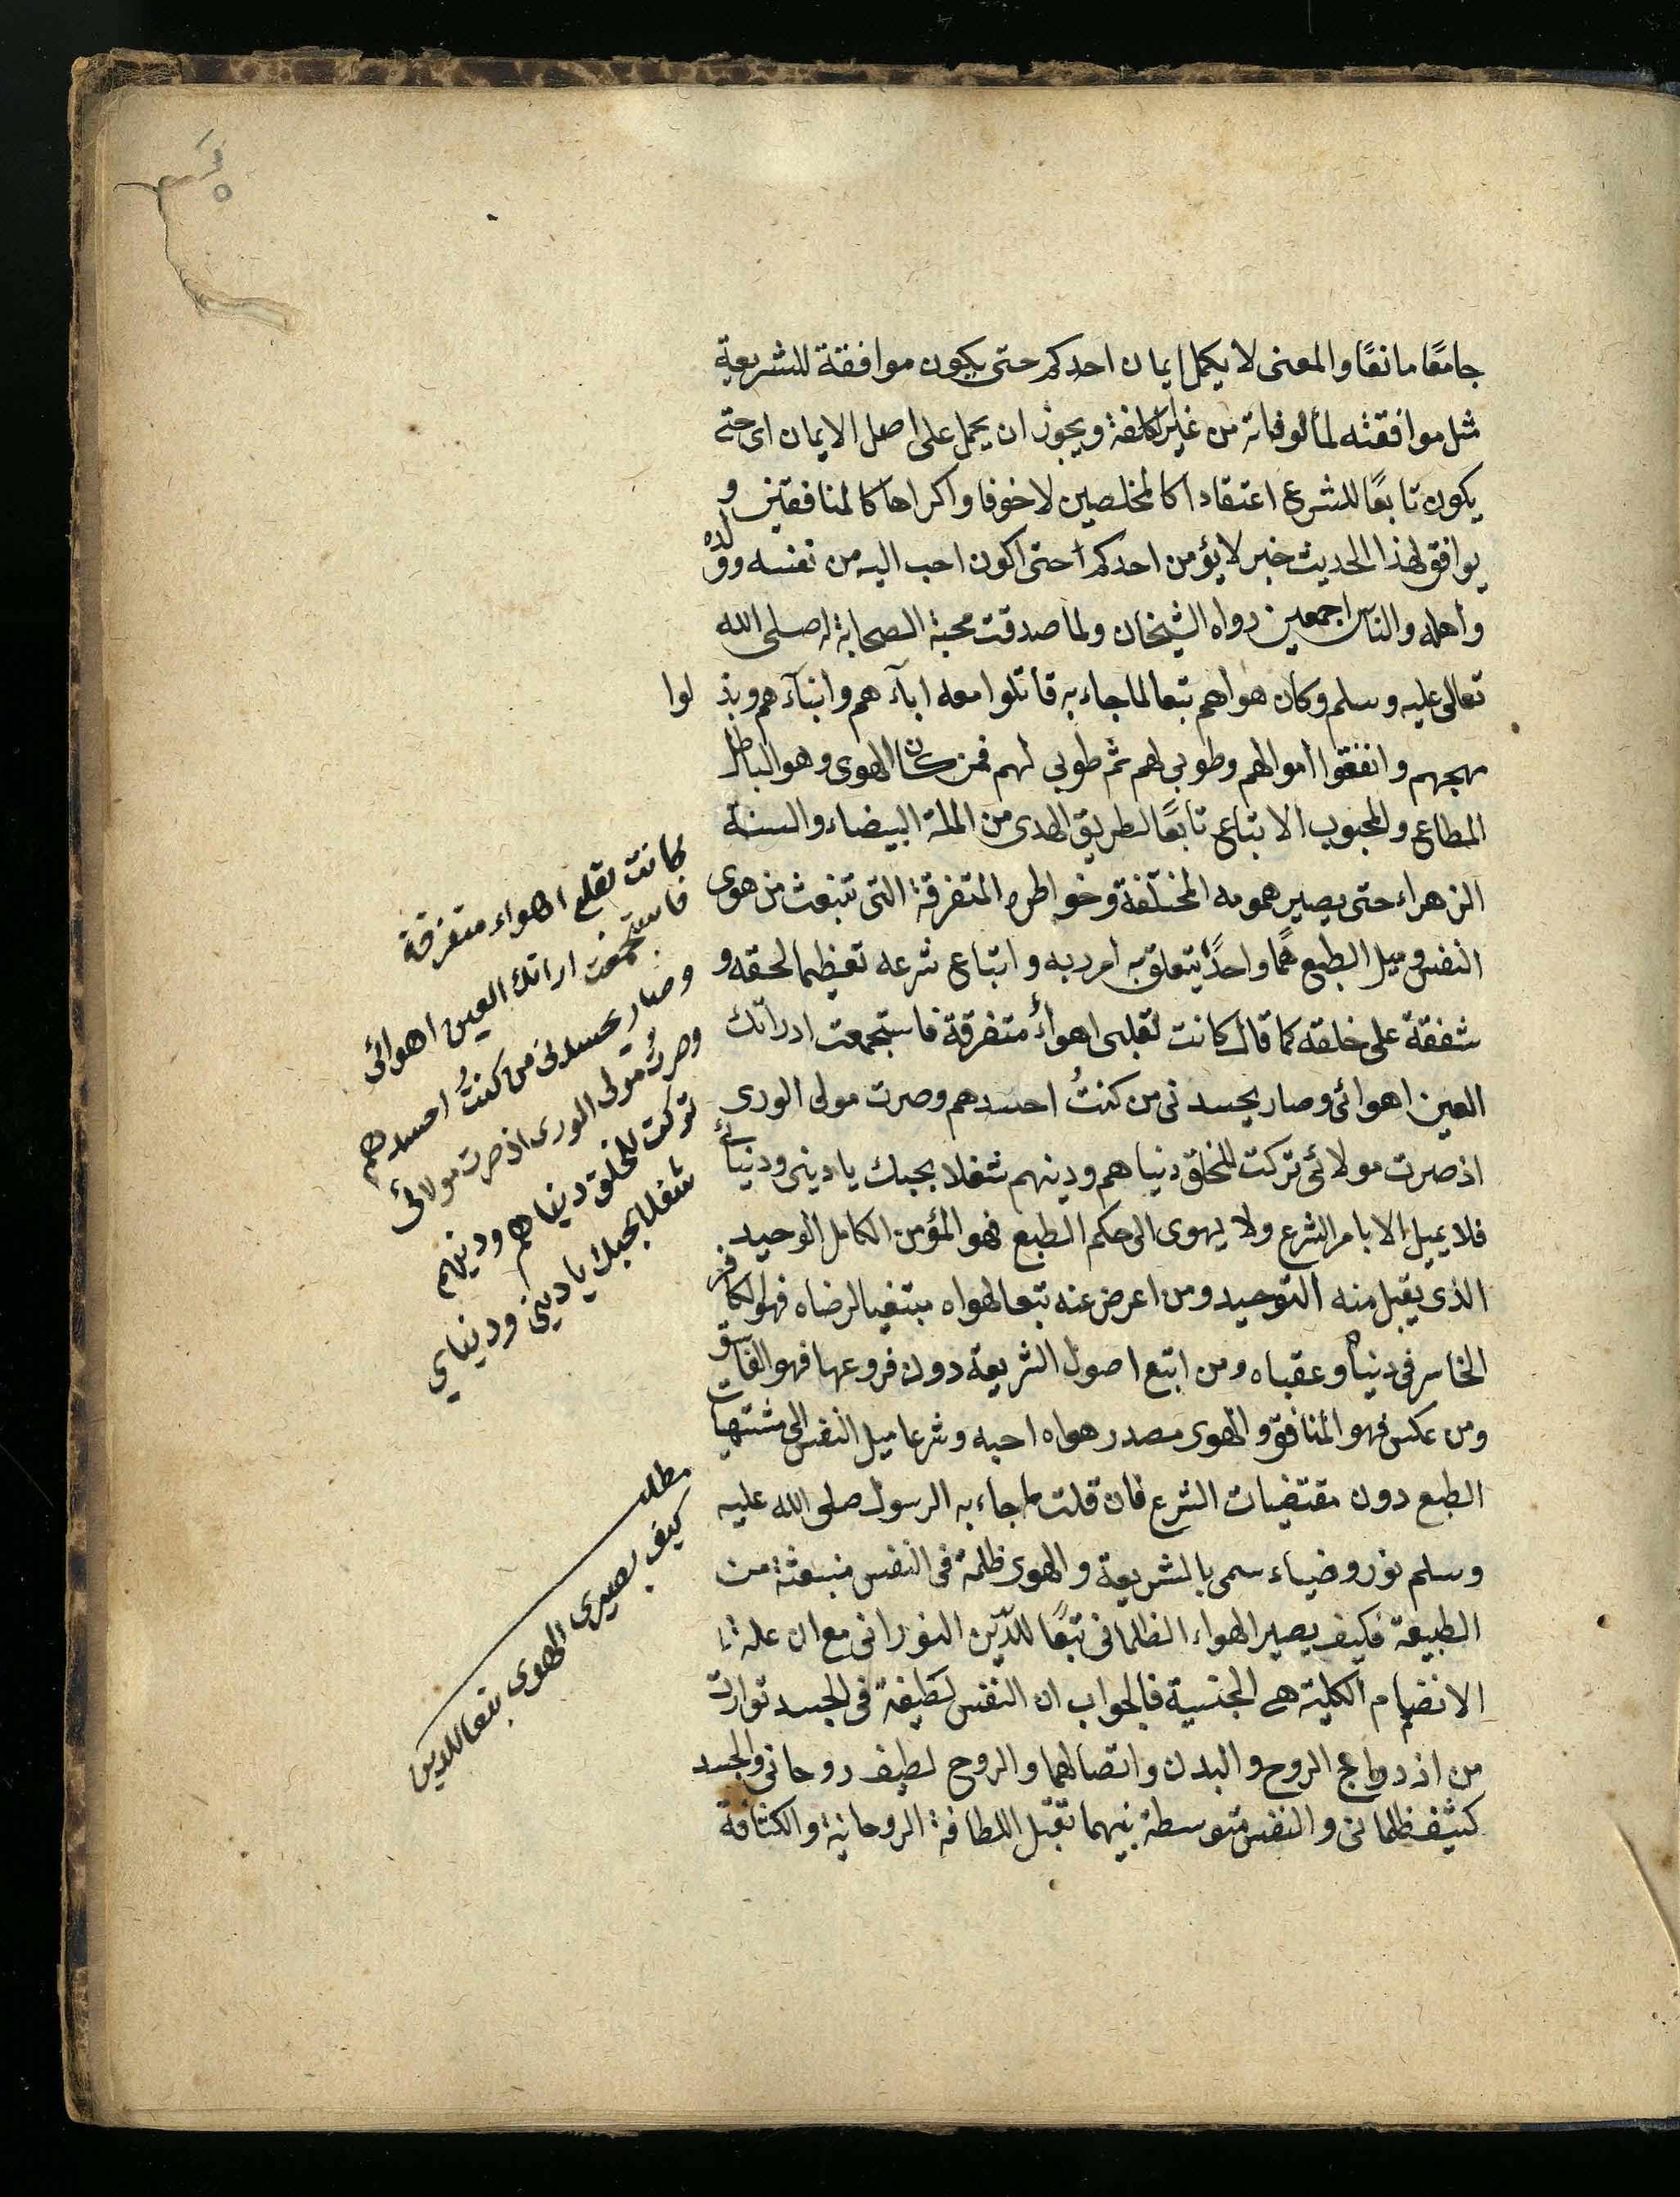 جامعًا مانعًا والمعنى لا يكمل ايمان احدكم حتى يكون موافقة للشريعية
مثل موافقته لمألوفاته من غير كلفة ويجوز ان يحمل على اصل الايمان اى حتى
يكون تابعًا للشرع اعتقادا كالمخلصين لا خوفا واكراها كالمنافقين و
يوافق لهذا الحديث خبر لا يؤمن احدكم حتى اكون احب اليه من نفسه وولده
واهله والناس اجمعين رواه الشيخان ولما صدقت محبة الصحابة له صلى الله
تعالى عليه وسلم وكان هواهم تبعا لما جاء به قاتلوا معه ابآءهم وابنآءهم وبذلوا
مهجهم وانفقوا اموالهم وطوبى لهم ثم طوبى لهم فمن كان الهوى وهو الباطل
المطاع والمحبوب الاتباع تابعًا لطريق الهدى من الملة البيضاء والسنة
الزهراء حتى يصير همومه المختلفة وخواطره المتفرقة التى تنبعث من هوى
النفس وميل الطبع همًا واحدًا يتعلق به امر ربه واتباع شرعه تعظيما لحقه و
شفقة على خلقه كما قال كانت لقلبى اهواءٌ متفرقة فاستجمعت اذ راتك
العين اهوائى وصار يحسدنى من كنتُ احسدهم وصرت مولى الورى
اذ صرت مولائى تركت للخلق دنياهم ودينهم شغلا بحبك يا دينى ودنيائى
فلا يميل الا بامر الشرع ولا يهوى الى حكم الطبع فهو المؤمن الكامل الوحيد
الذى يقبل منه التوحيد ومن اعرض عنه تبعا لهواه مبتغيا لرضاه فهو الكافر
الخاسر فى دنياه وعقباه ومن اتبع اصول الشريعة دون فروعها فهو الفاسق
ومن عكس فهو المنافق والهوى مصدر هواه احبه وشرعا ميل النفس الى مشتهيات
الطبع دون مقتضيات الشرع فان قلت ما جاء به الرسول صلى الله عليه
وسلم نور وضياء سمى بالشريعة والهوى ظلمة فى النفس منبعثة من
الطبيعة فكيف يصير الهواء الظلمانى تبعًا للدّين النورانى مع ان علة
الانضمام الكلية هى الجنسية فالجواب ان النفس لطيفة فى الجسد تولدت
من ازدواج الروح والبدن واتصالهما والروح لطيف روحانى والجسد
كثيف ظلمانى والنفس متوسطة بينهما تقبل اللطافة الروحانية والكثافة
كانت لقلبى اهواء متفرقة
فاستجمعت اراتك العين اهوائى
وصار يحسدنى من كنتُ احسدهم
وصرتُ مولى الورى اذ صرت مولائى
تركت للخلق دنياهم ودينهم
شغلا بحبك يا دينى ودنياي
مطلب
كيف يصير الهوى تبعا للدين